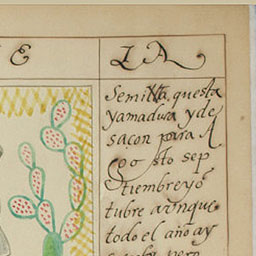 E LA
Semilla questa
yamadura yde
sacon para A
gosto sep
tiembre yo
tubre aunque
todo el año ay